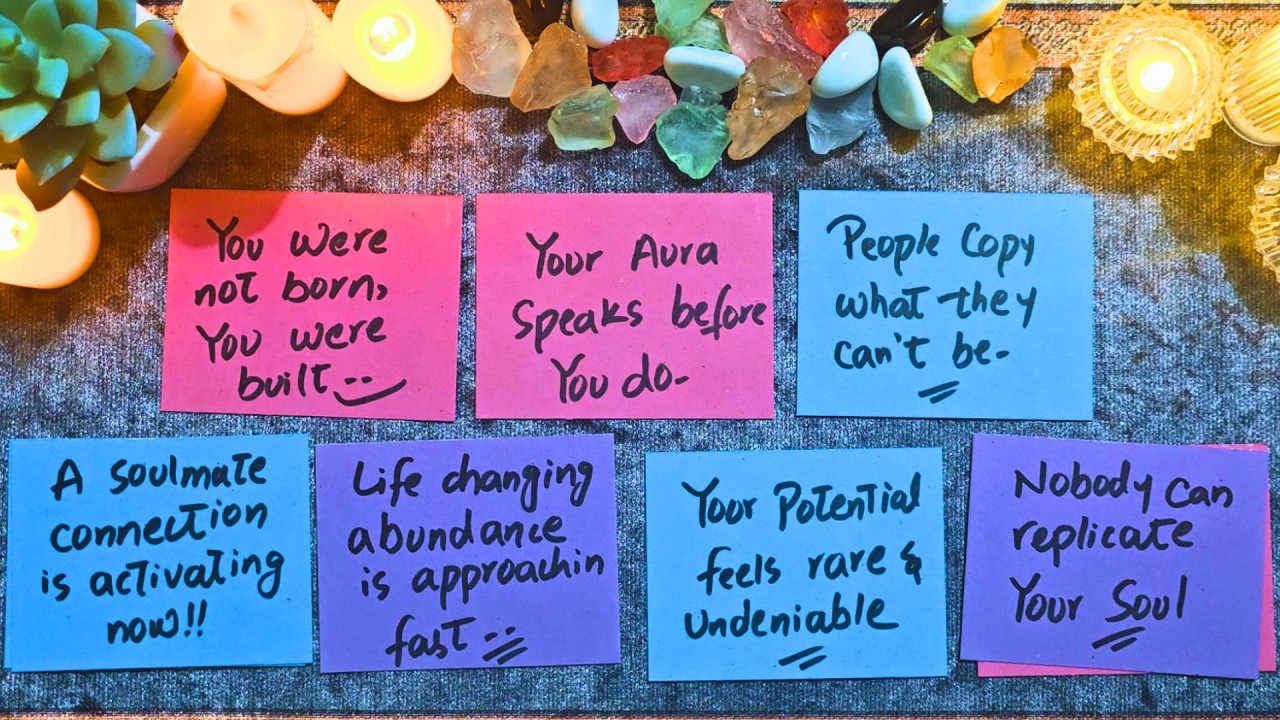 You were
not born,
You were
built
Your Aura
Speaks before
You do-
People Copy
what they
can't be-
A soulmate
connection
is activating
now!!
Life changing
abundance
is approachin
fast
Your Potential
feels rare &
undeniable
Nobody Can
replicate
Your Soul